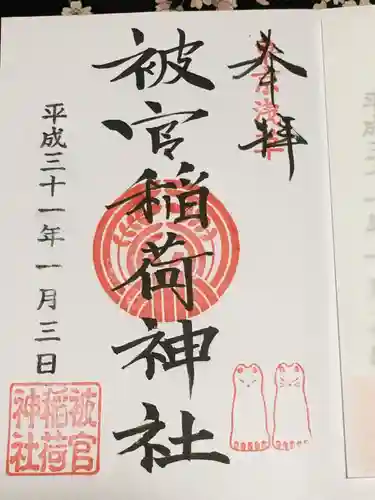 奉拝
東京浅草
被官稲荷神社
平成三十一年一月三日
被官
稲荷
神社